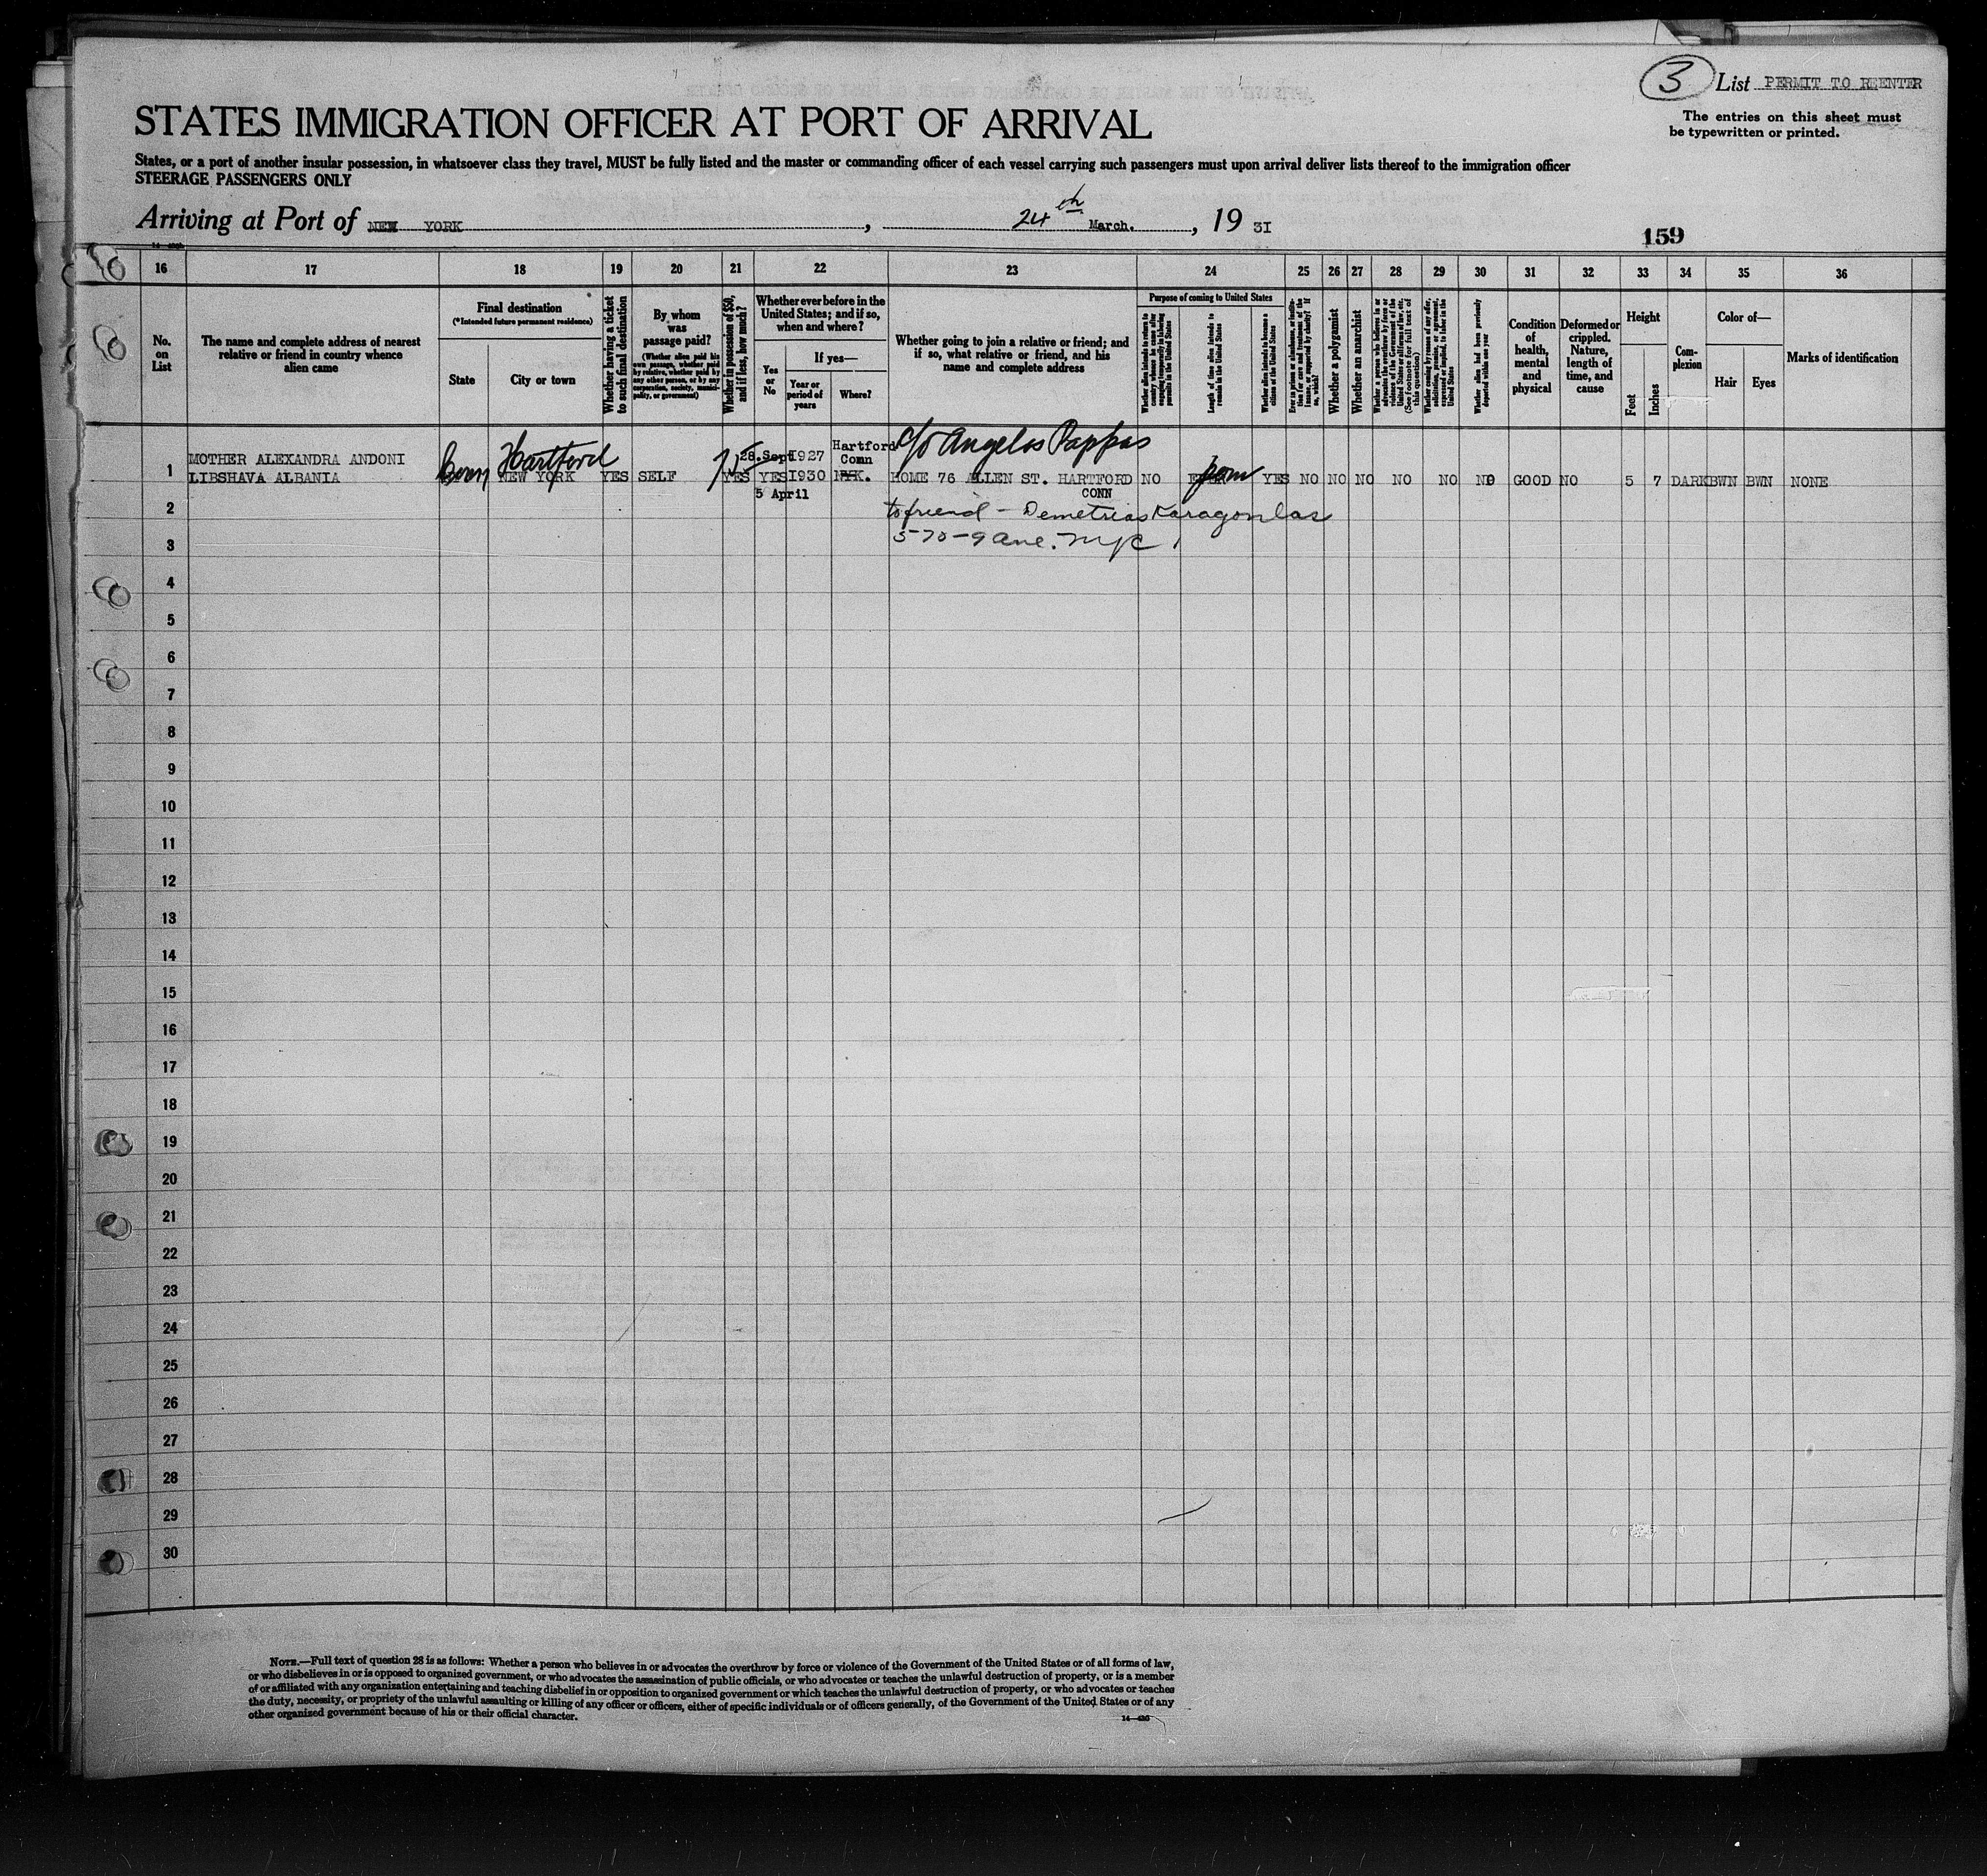 3 List PERMIT TO REENTER
The entries on this sheet must
be typewritten or printed.
STATES IMMIGRATION OFFICER AT PORT OF ARRIVAL
States, or a port of another insular possession, in whatsoever class they travel, MUST be fully listed and the master or commanding officer of each vessel carrying such passengers must upon arrival deliver lists thereof to the immigration officer
STEERAGE PASSENGERS ONLY
Arriving at Port of NEW YORK, 24th March., 19 31
159
16 17 18 19 20 21 22 23 24 25 26 27 28 29 30 31 32 33 34 35 36
No.
on
List
The name and complete address of nearest
relative or friend in country whence
alien came
Final destination
(*Intended future permanent residence)
State
City or town
Whether having a ticket
to such final destination
By whom
was
passage paid?
(Whether alien paid his
own passage, whether paid
by relative, whether paid by
any other person, or by any
corporation, society, munici-
pality, or government)
Whether in possession of $50,
and if less, how much?
Whether ever before in the
United States; and if so,
when and where?
Yes
or
No
If yes—
Year or
period of
years
Where?
Whether going to join a relative or friend; and
if so, what relative or friend, and his
name and complete address
Purpose of coming to United States
Whether alien intends to return to
country whence he came after
engaging temporarily in laboring
pursuits in the United States
Length of time alien intends to
remain in the United States
Whether alien intends to become a
citizen of the United States
Ever in prison or almshouse, or institu-
tion for care and treatment of the
insane, or supported by charity? If
so, which?
Whether a polygamist
Whether an anarchist
Whether a person who believes in or
advocates the overthrow by force or
violence of the Government of the
United States or all forms of law, etc.
(See footnote for full text of
this question)
Whether coming by reason of any offer,
solicitation, promise, or agreement,
expressed or implied, to labor in the
United States
Whether alien had been previously
deported within one year
Condition
of
health,
mental
and
physical
Deformed or
crippled.
Nature,
length of
time, and
cause
Height
Feet
Inches
Com-
plexion
Color of—
Hair
Eyes
Marks of identification
MOTHER ALEXANDRA ANDONI Hartford 28.Sept 1927 Hartford Conn c/o Angelos Pappas
1 LIBSHAVA ALBANIA Conn NEW YORK YES SELF YES YES 1930 N.YK. HOME 76 ALLEN ST. HARTFORD NO perm YES NO NO NO NO NO NO GOOD NO 5 7 DARK BWN BWN NONE
5 April CONN
2 to friend - Demetrias Karagonlas
3 570-9 Ave. NYC
4
5
6
7
8
9
10
11
12
13
14
15
16
17
18
19
20
21
22
23
24
25
26
27
28
29
30
NOTE.—Full text of question 28 is as follows: Whether a person who believes in or advocates the overthrow by force or violence of the Government of the United States or of all forms of law,
or who disbelieves in or is opposed to organized government, or who advocates the assassination of public officials, or who advocates or teaches the unlawful destruction of property, or is a member
of or affiliated with any organization entertaining and teaching disbelief in or opposition to organized government or which teaches the unlawful destruction of property, or who advocates or teaches
the duty, necessity, or propriety of the unlawful assaulting or killing of any officer or officers, either of specific individuals or of officers generally, of the Government of the United States or of any
other organized government because of his or their official character.